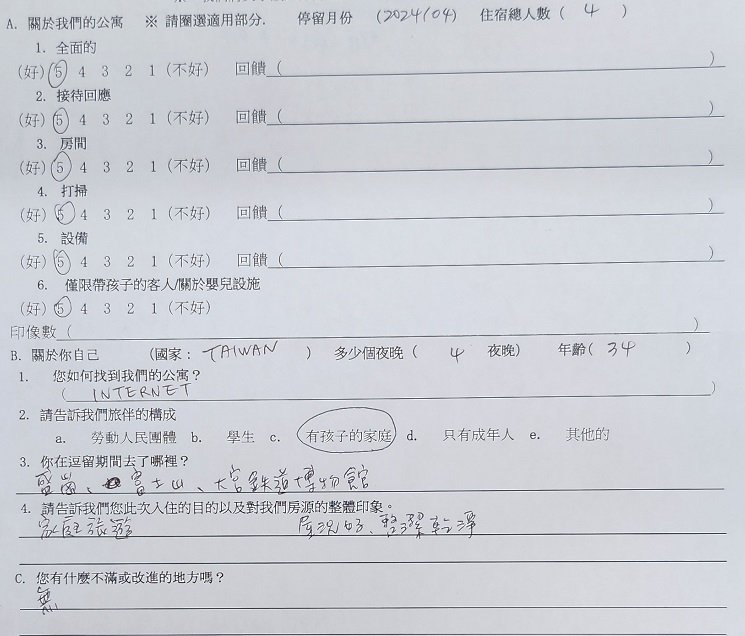 A. 關於我們的公寓 ※ 請圈選適用部分. 停留月份 (2024/04) 住宿總人數 ( 4 )
1. 全面的
(好) 5 4 3 2 1 (不好) 回饋 ( )
2. 接待回應
(好) 5 4 3 2 1 (不好) 回饋 ( )
3. 房間
(好) 5 4 3 2 1 (不好) 回饋 ( )
4. 打掃
(好) 5 4 3 2 1 (不好) 回饋 ( )
5. 設備
(好) 5 4 3 2 1 (不好) 回饋 ( )
6. 僅限帶孩子的客人/關於嬰兒設施
(好) 5 4 3 2 1 (不好)
印像數 ( )
B. 關於你自己 (國家: TAIWAN ) 多少個夜晚 ( 4 夜晚) 年齡( 34 )
1. 您如何找到我們的公寓?
( INTERNET )
2. 請告訴我們旅伴的構成
a. 勞動人民團體 b. 學生 c. 有孩子的家庭 d. 只有成年人 e. 其他的
3. 你在逗留期間去了哪裡?
盛崗、富士山、大宮鉄道博物館
4. 請告訴我們您此次入住的目的以及對我們房源的整體印象。
家庭旅遊 屋況好、整潔乾淨
C. 您有什麼不滿或改進的地方嗎?
無